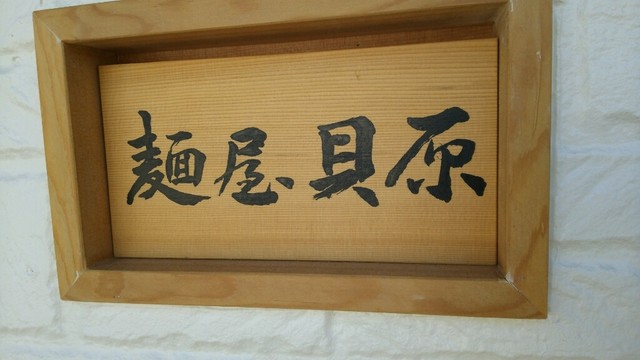 麺屋貝原